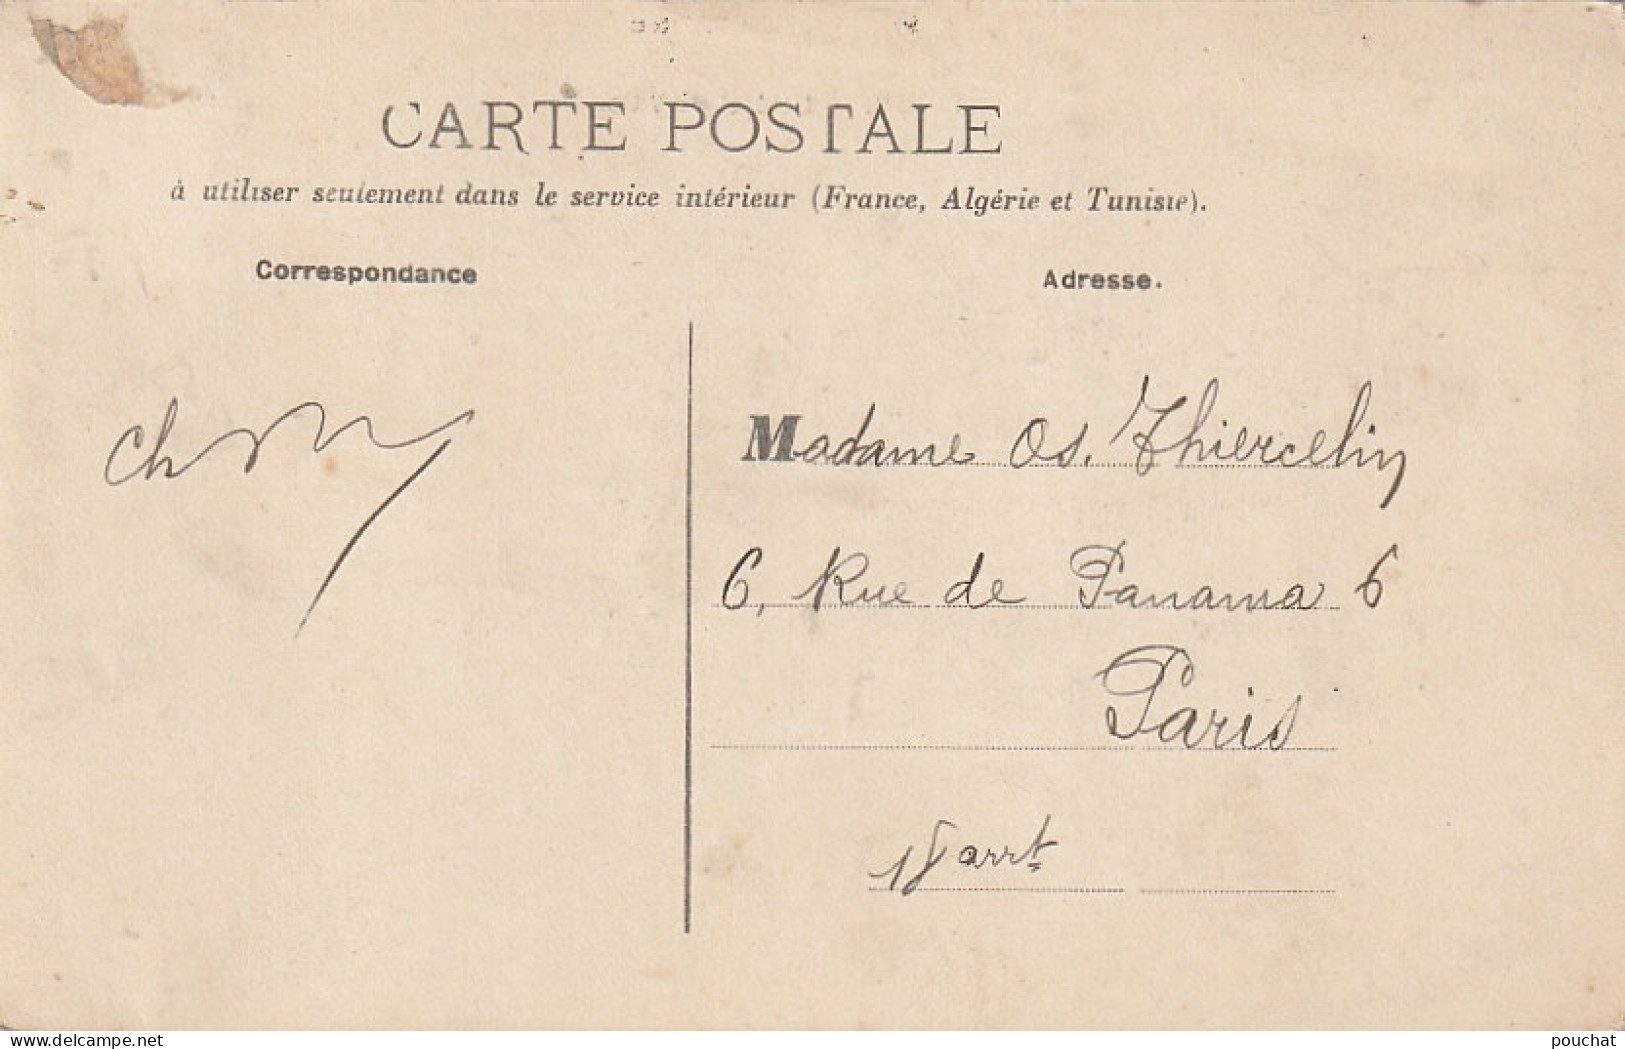 CARTE POSTALE
à utiliser seulement dans le service intérieur (France, Algérie et Tunisie).
Correspondance
Adresse.
Madame Os. Thiercelin
6, Rue de Panama 6
Paris
18 arrt
delcampe.net
pouchat